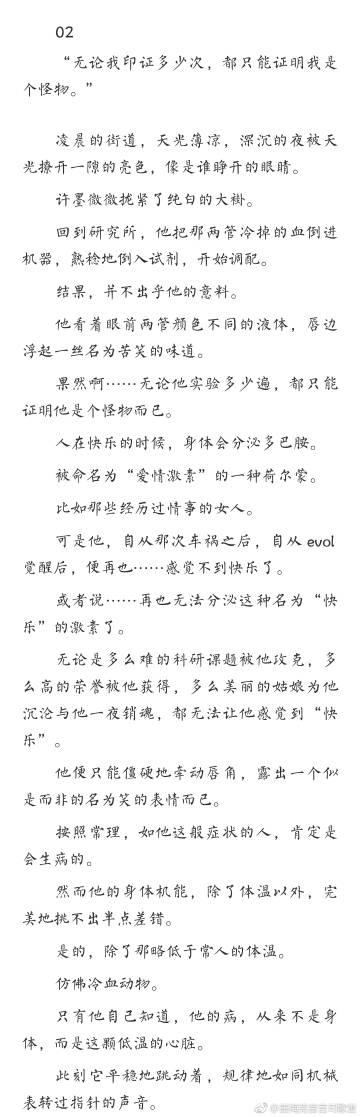 02
“无论我印证多少次，都只能证明我是
个怪物。”
凌晨的街道，天光薄凉，深沉的夜被天
光撩开一隙的亮色，像是谁睁开的眼睛。
许墨微微拢紧了纯白的大褂。
回到研究所，他把那两管冷掉的血倒进
机器，熟稔地倒入试剂，开始调配。
结果，并不出乎他的意料。
他看着眼前两管颜色不同的液体，唇边
浮起一丝名为苦笑的味道。
果然啊……无论他实验多少遍，都只能
证明他是个怪物而已。
人在快乐的时候，身体会分泌多巴胺。
被命名为“爱情激素”的一种荷尔蒙。
比如那些经历过情事的女人。
可是他，自从那次车祸之后，自从 evol
觉醒后，便再也……感觉不到快乐了。
或者说……再也无法分泌这种名为“快
乐”的激素了。
无论是多么难的科研课题被他攻克，多
么高的荣誉被他获得，多么美丽的姑娘为他
沉沦与他一夜销魂，都无法让他感觉到“快
乐”。
他便只能僵硬地牵动唇角，露出一个似
是而非的名为笑的表情而已。
按照常理，如他这般症状的人，肯定是
会生病的。
然而他的身体机能，除了体温以外，完
美地挑不出半点差错。
是的，除了那略低于常人的体温。
仿佛冷血动物。
只有他自己知道，他的病，从来不是身
体，而是这颗低温的心脏。
此刻它平稳地跳动着，规律地如同机械
表转过指针的声音。